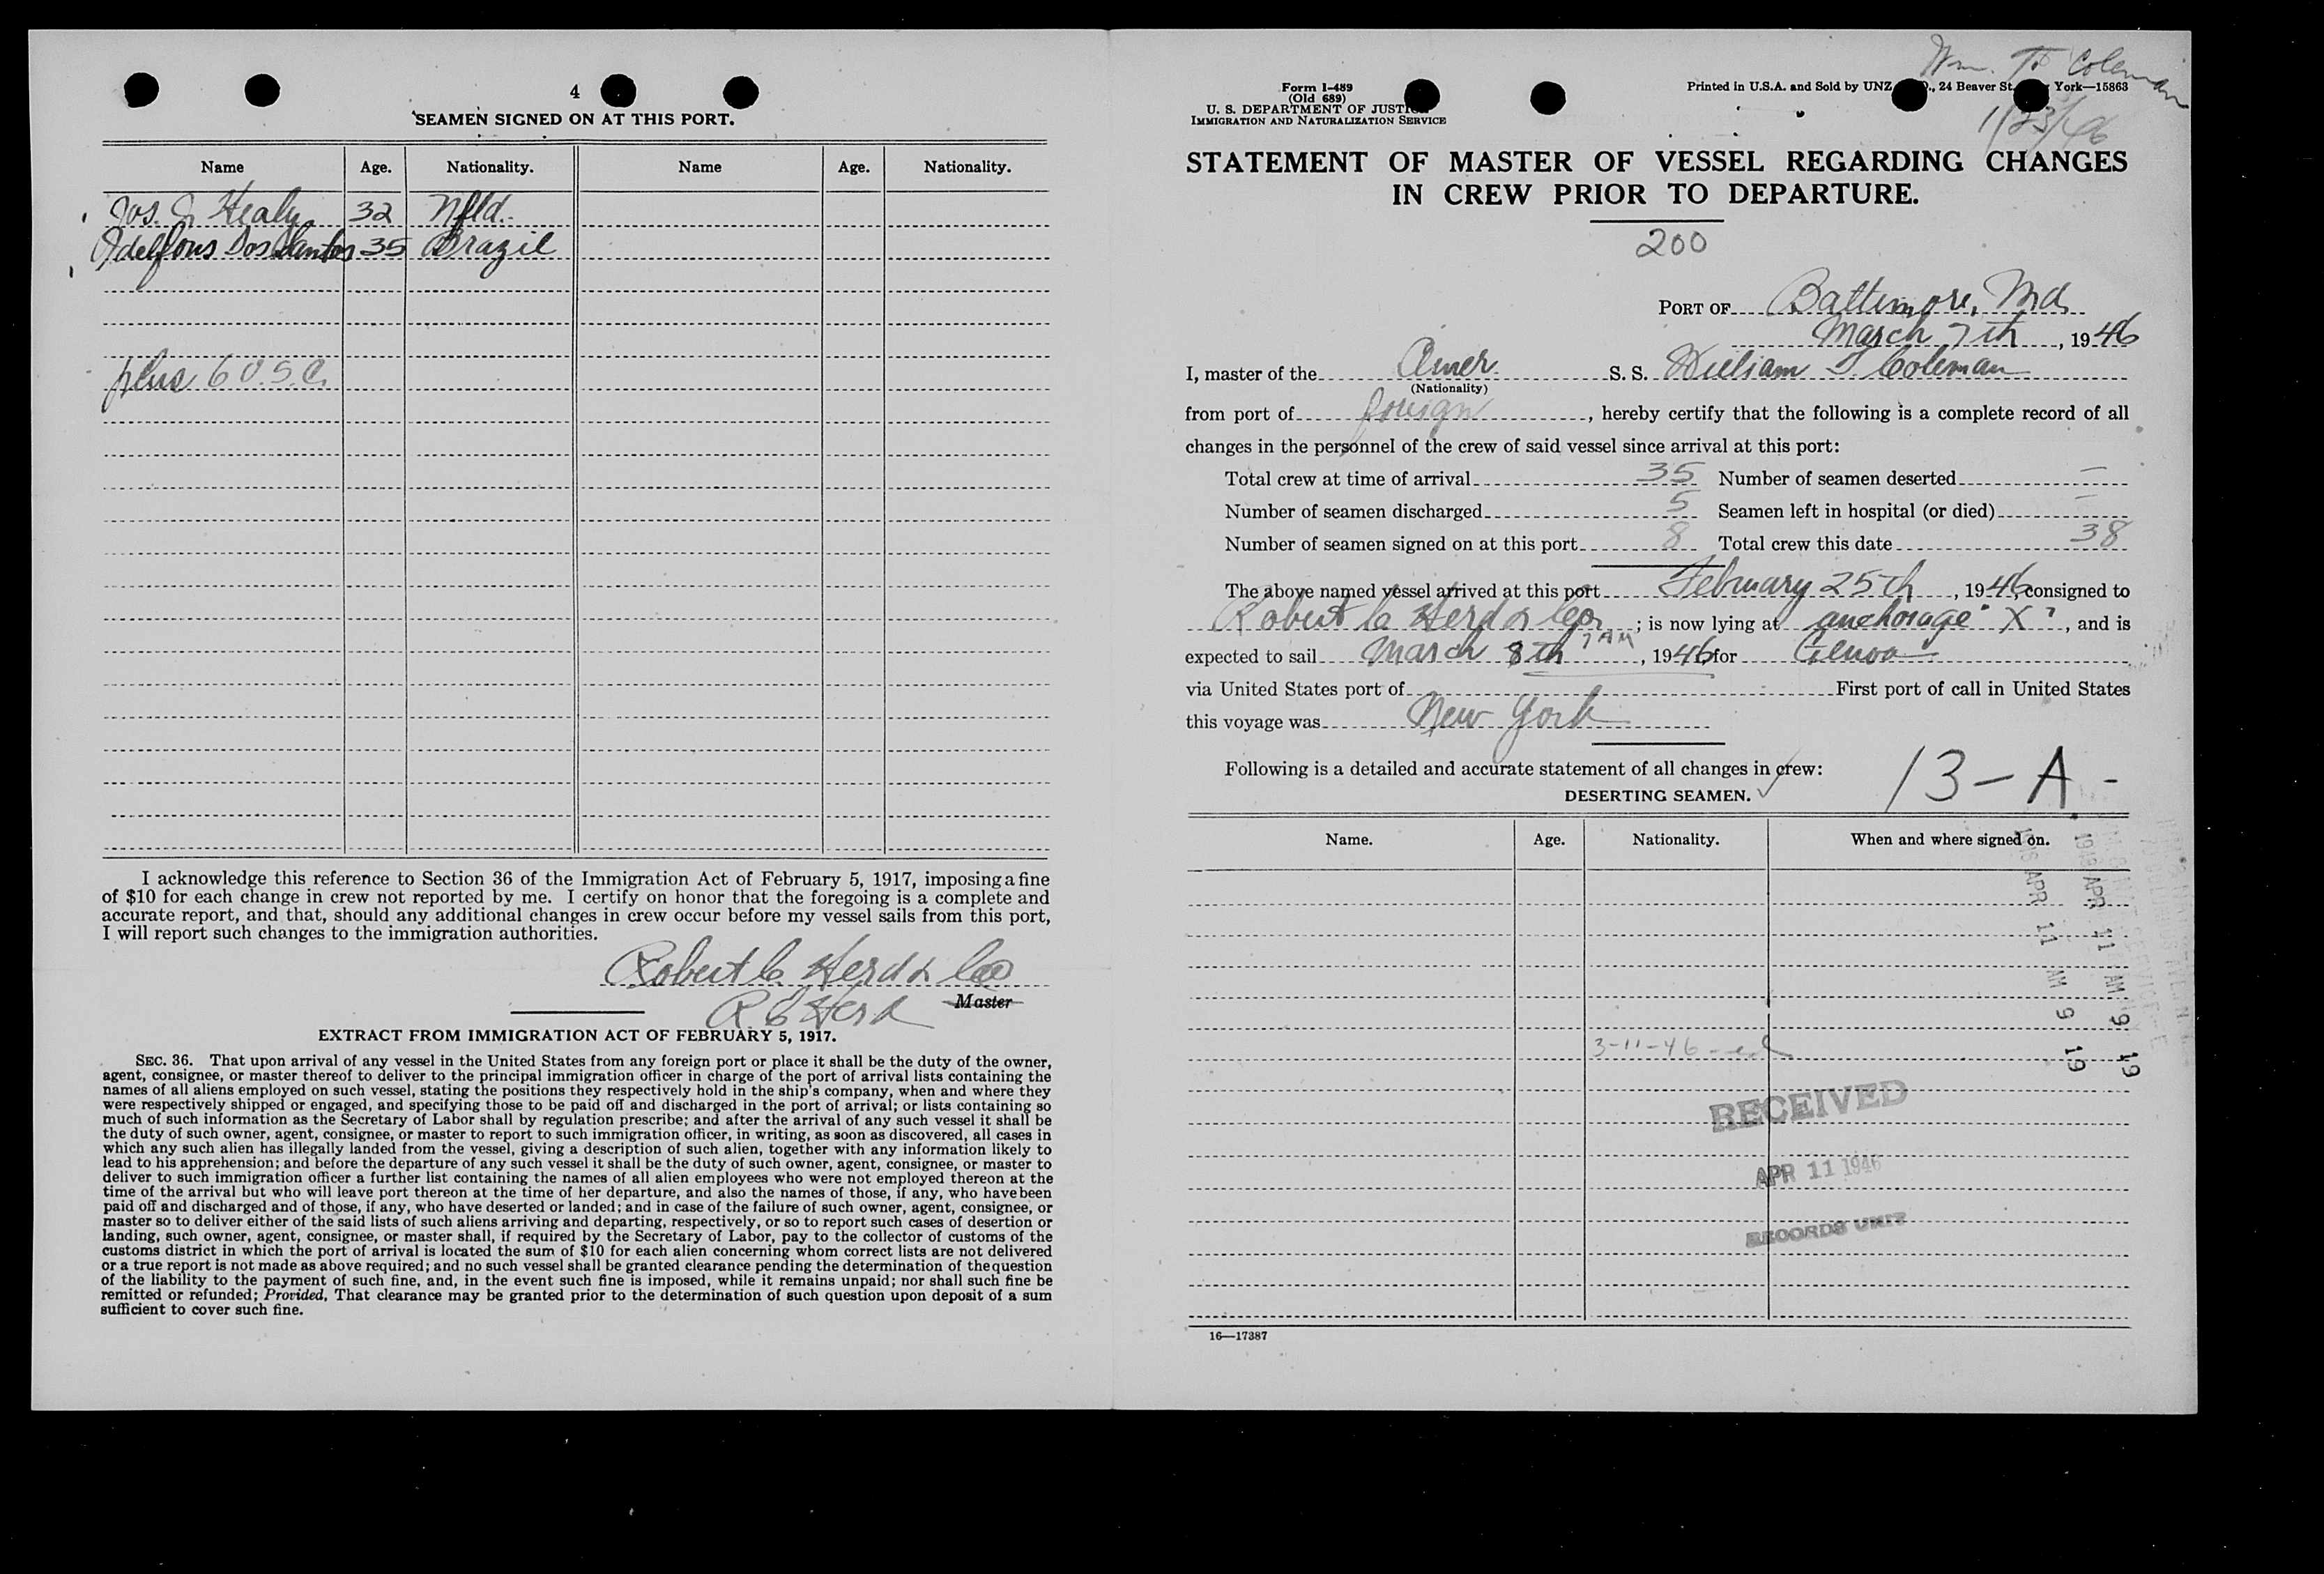 4
SEAMEN SIGNED ON AT THIS PORT.
Name Age. Nationality. Name Age. Nationality.
Jos. J. Healy 32 Nfld.
Idelfons Dos Santos 35 Brazil
plus 6 U.S.C.
I acknowledge this reference to Section 36 of the Immigration Act of February 5, 1917, imposing a fine
of $10 for each change in crew not reported by me. I certify on honor that the foregoing is a complete and
accurate report, and that, should any additional changes in crew occur before my vessel sails from this port,
I will report such changes to the immigration authorities.
Robert C Herd & Co
R C Herd Master
EXTRACT FROM IMMIGRATION ACT OF FEBRUARY 5, 1917.
SEC. 36. That upon arrival of any vessel in the United States from any foreign port or place it shall be the duty of the owner,
agent, consignee, or master thereof to deliver to the principal immigration officer in charge of the port of arrival lists containing the
names of all aliens employed on such vessel, stating the positions they respectively hold in the ship's company, when and where they
were respectively shipped or engaged, and specifying those to be paid off and discharged in the port of arrival; or lists containing so
much of such information as the Secretary of Labor shall by regulation prescribe; and after the arrival of any such vessel it shall be
the duty of such owner, agent, consignee, or master to report to such immigration officer, in writing, as soon as discovered, all cases in
which any such alien has illegally landed from the vessel, giving a description of such alien, together with any information likely to
lead to his apprehension; and before the departure of any such vessel it shall be the duty of such owner, agent, consignee, or master to
deliver to such immigration officer a further list containing the names of all alien employees who were not employed thereon at the
time of the arrival but who will leave port thereon at the time of her departure, and also the names of those, if any, who have been
paid off and discharged and of those, if any, who have deserted or landed; and in case of the failure of such owner, agent, consignee, or
master so to deliver either of the said lists of such aliens arriving and departing, respectively, or so to report such cases of desertion or
landing, such owner, agent, consignee, or master shall, if required by the Secretary of Labor, pay to the collector of customs of the
customs district in which the port of arrival is located the sum of $10 for each alien concerning whom correct lists are not delivered
or a true report is not made as above required; and no such vessel shall be granted clearance pending the determination of the question
of the liability to the payment of such fine, and, in the event such fine is imposed, while it remains unpaid; nor shall such fine be
remitted or refunded; Provided, That clearance may be granted prior to the determination of such question upon deposit of a sum
sufficient to cover such fine.
Wm. T. Coleman
1/23/46
Form I-489
(Old 689)
U. S. DEPARTMENT OF JUSTI
IMMIGRATION AND NATURALIZATION SERVICE
Printed in U.S.A. and Sold by UNZ ., 24 Beaver St. York—15863
STATEMENT OF MASTER OF VESSEL REGARDING CHANGES
IN CREW PRIOR TO DEPARTURE.
200
PORT OF Baltimore, Md
March 7th, 1946
I, master of the Amer. S. S. William T Coleman
(Nationality)
from port of foreign, hereby certify that the following is a complete record of all
changes in the personnel of the crew of said vessel since arrival at this port:
Total crew at time of arrival 35 Number of seamen deserted —
Number of seamen discharged 5 Seamen left in hospital (or died) —
Number of seamen signed on at this port 8 Total crew this date 38
The above named vessel arrived at this port February 25th, 1946, consigned to
Robert C Herd & Co; is now lying at anchorage "X", and is
expected to sail March 8th 7 AM, 1946, for Genoa
via United States port of First port of call in United States
this voyage was New York
Following is a detailed and accurate statement of all changes in crew:
13-A-
DESERTING SEAMEN.
Name. Age. Nationality. When and where signed on.
1946 APR 11 AM 9 19
1946 APR 11 AM 9 19
3-11-46
RECEIVED
APR 11 1946
RECORDS UNIT
16—17387